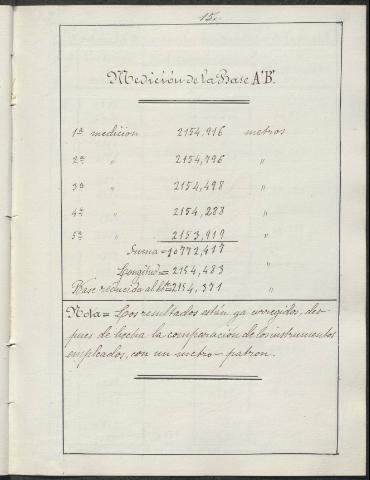 15.
Medición de la Base A'B'.
1ª medicion 2154,916 metros
2ª " 2154,796 "
3ª " 2154,498 "
4ª " 2154,288 "
5ª " 2153,919 "
Suma = 10772,417
Longitud = 2154,483 "
Base reducida al hte = 2154,371
Nota = Los resultados están ya corregidos, des-
pues de hecha la comparación de los instrumentos
empleados, con un metro-patron.